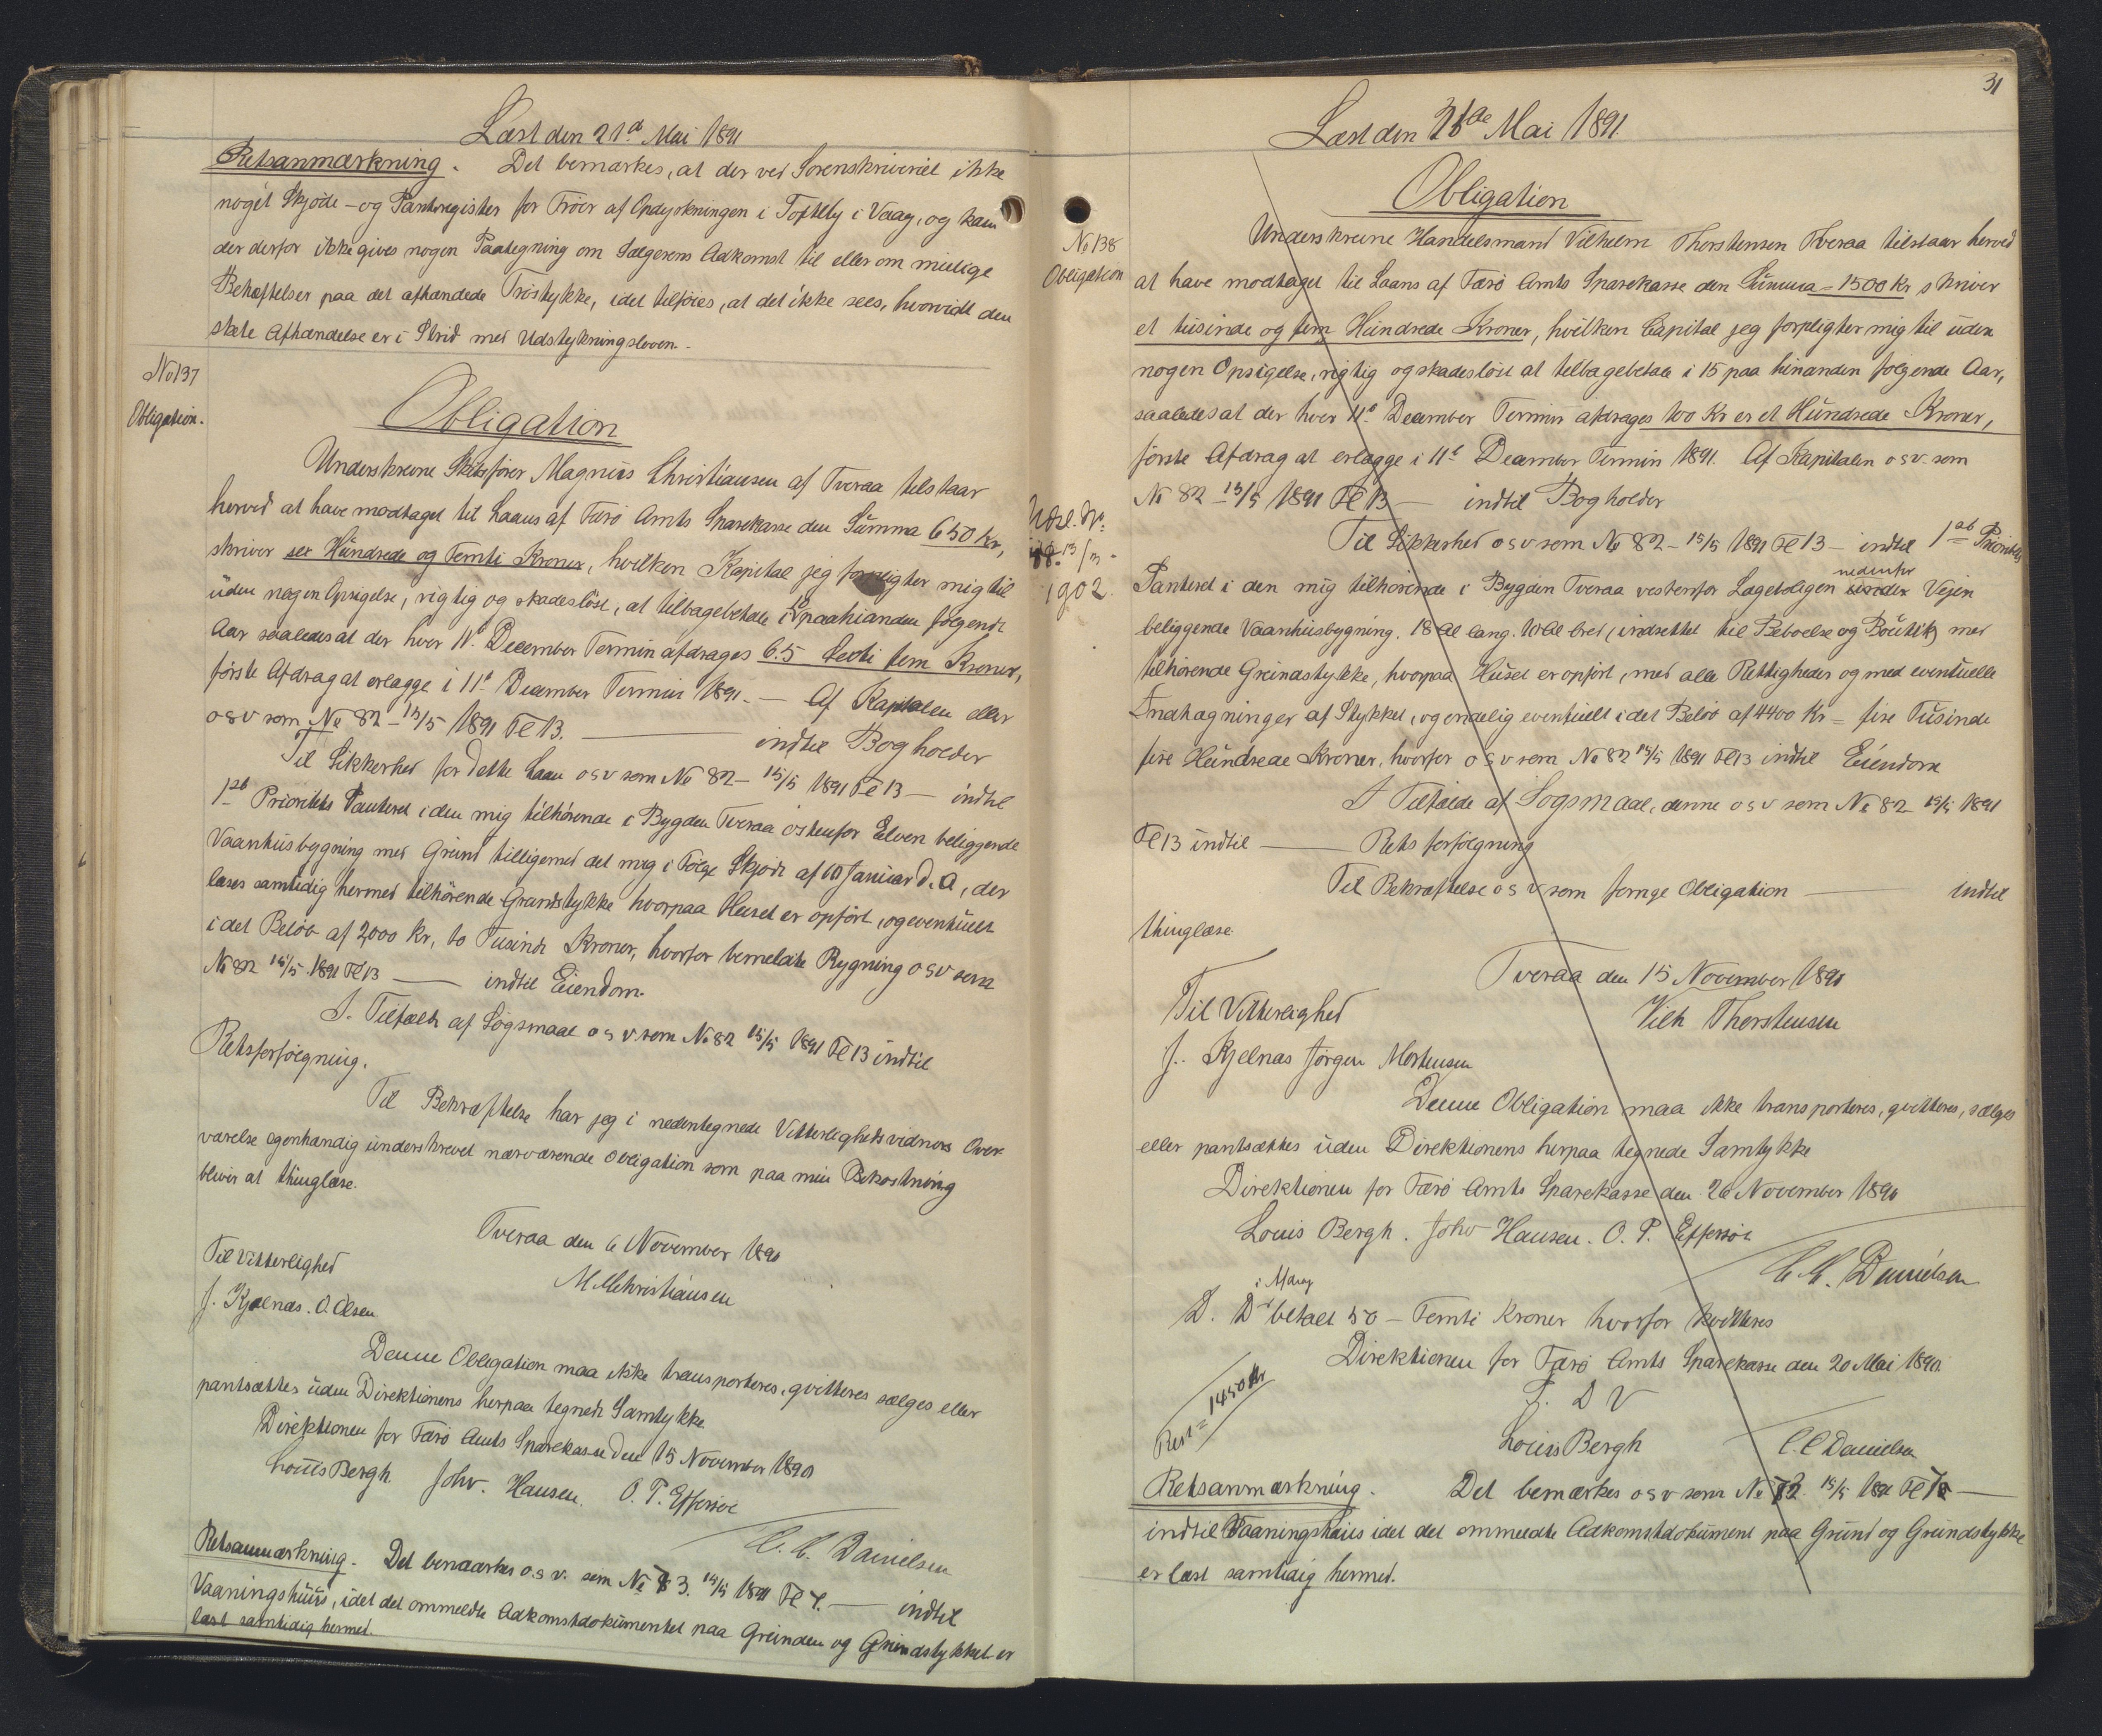 Læst den 21de Mai 1891
Retsanmærkning. Det bemærkes, at der ved Sorenskriveriet ikke
noget Skjöde- og Panteregister for Tröer af Opdyrkningen i Tofteby i Vaag, og kan
der derfor ikke gives nogen Paategning om Sælgerens Adkomst til eller om mulige
Behæftelser paa det afhændede Tröstykke, idet tilföies, at det ikke sees, hvorvidt den
skete Afhændelse er i Strid med Udstykningsloven.
No 137
Obligation.
Obligation
Underskrevne Magnus Christiansen af Tveraa tilstaar
herved at have modtaget til Laans af Færö Amts Sparekasse den Summa 650 Kr,
skriver sex Hundrede og Femti Kroner, hvilken Kapital jeg forpligter mig til
uden nogen Opsigelse, rigtig og skadeslöst, at tilbagebetale i paahinanden fölgende
Aar saaledes at der hver 11te December Termin afdrages 65 Kroner,
förste Afdrag at erlægge i 11te December Termin 1891. — Af Kapitalen eller
osv som No 82 - 15/5 1891 Fl 13. — indtil Bogholder
Til Sikkerhed for dette Laan osv som No 82 - 15/5 1891 Fl 13 — indtil
1ste Prioritets Panteret i den mig tilhörende i Bygden Tveraa östenfor Elven beliggende
Vaanhusbygning med Grund tilligemed det mig i Fölge Skjöde af 10 Januar d. A, der
læses samtidig hermed tilhörende Grundstykke hvorpaa Huset er opfört, og eventuelt
i det Belöb af 2000 Kr, to Tusinde Kroner, hvorfor bemeldte Bygning osv som
No 82 15/5 1891 Fl 13 — indtil Eiendom.
I Tilfælde af Sögsmaal osv som No 82 15/5 1891 Fl 13 indtil
Retsforfölgning.
Til Bekræftelse har jeg i nedentegnede Vitterlighedsvidners Over-
værelse egenhændig underskrevet nærværende Obligation som paa min Bekostning
bliver at thinglæse.
Tveraa den 6 November 1890
Til Vitterlighed
M Christiansen
J. Kjølnæs. O. Olsen
Denne Obligation maa ikke transporteres, qvitteres sælges eller
pantsættes uden Direktionens herpaa tegnede Samtykke
Direktionen for Færö Amts Sparekasse den 15 November 1890
Louis Bergh. Johs. Hansen. O. P. Effersöe
C. C. Danielsen
Retsanmærkning. Det bemærkes o.s.v. som No 83. 15/5 1891 Fl — indtil
Vaaningshuus, idet det ommeldte Adkomstdokumentet paa Grunden og Grundstykket er
læst samtidig hermed.
31
Læst den 21de Mai 1891
Obligation
No 138
Obligation
Underskrevne Handelsmand Vilhelm Thorstensen Tveraa tilstaar herved
at have modtaget til Laans af Færö Amts Sparekasse den Summa - 1500 Kr skriver
et tusinde og fem Hundrede Kroner, hvilken Capital jeg forpligter mig til uden
nogen Opsigelse, rigtig og skadeslöst at tilbagebetale i 15 paa hinanden fölgende Aar,
saaledes at der hver 11te December Termin afdrages 100 Kr er et Hundrede Kroner,
förste Afdrag at erlægge i 11te December Termin 1891. Af Kapitalen osv. som
No 82 15/5 1891 Fl 13 — indtil Bogholder
Udsl. No.
13/3 -
1902.
Til Sikkerhed osv som No 82 - 15/5 1891 Fl 13 - indtil 1ste Prioritets
Panteret i den mig tilhörende i Bygden Tveraa vestenfor Lægeboligen under nedenfor Vejen
beliggende Vaanhusbygning. 18 Al lang. 10 Al bred, indrettet til Beboelse og Boutik, med
tilhörende Grundstykke, hvorpaa Huset er opfört, med alle Rettigheder og med eventuelle
Indhægninger af Stykket, og endelig eventuelt i det Belöb af 4400 Kr = fire Tusinde
fire Hundrede Kroner, hvorfor osv som No 82 15/5 1891 Fl 13 indtil Eiendom
I Tilfælde af Sögsmaal, denne osv som No 82 15/5 1891
Fl 13 indtil — Retsforfölgning
Til Bekræftelse osv som forrige Obligation — indtil
thinglæse.
Tveraa den 15 November 1890
Til Vitterlighed
Vilh Thorstensen
J. Kjelnæs Jörgen Mortensen
Denne Obligation maa ikke transporteres, qvitteres, sælges
eller pantsættes uden Direktionens herpaa tegnede Samtykke
Direktionen for Færö Amts Sparekasse den 26 November 1890
Louis Bergh. Johs Hansen. O. P. Effersöe
C. C. Danielsen
D. D i Afdrag betalt 50 - Femti Kroner hvorfor kvitteres
Direktionen for Færö Amts Sparekasse den 20 Mai 1891
F. D V
Rest = 1450 Kr
Louis Bergh C. C Danielsen
Retsanmærkning. Det bemærkes osv som No 15/5 1891 Fl —
indtil Vaaningshuus idet det ommeldte Adkomstdokument paa Grund og Grundstykke
er læst samtidig hermed.